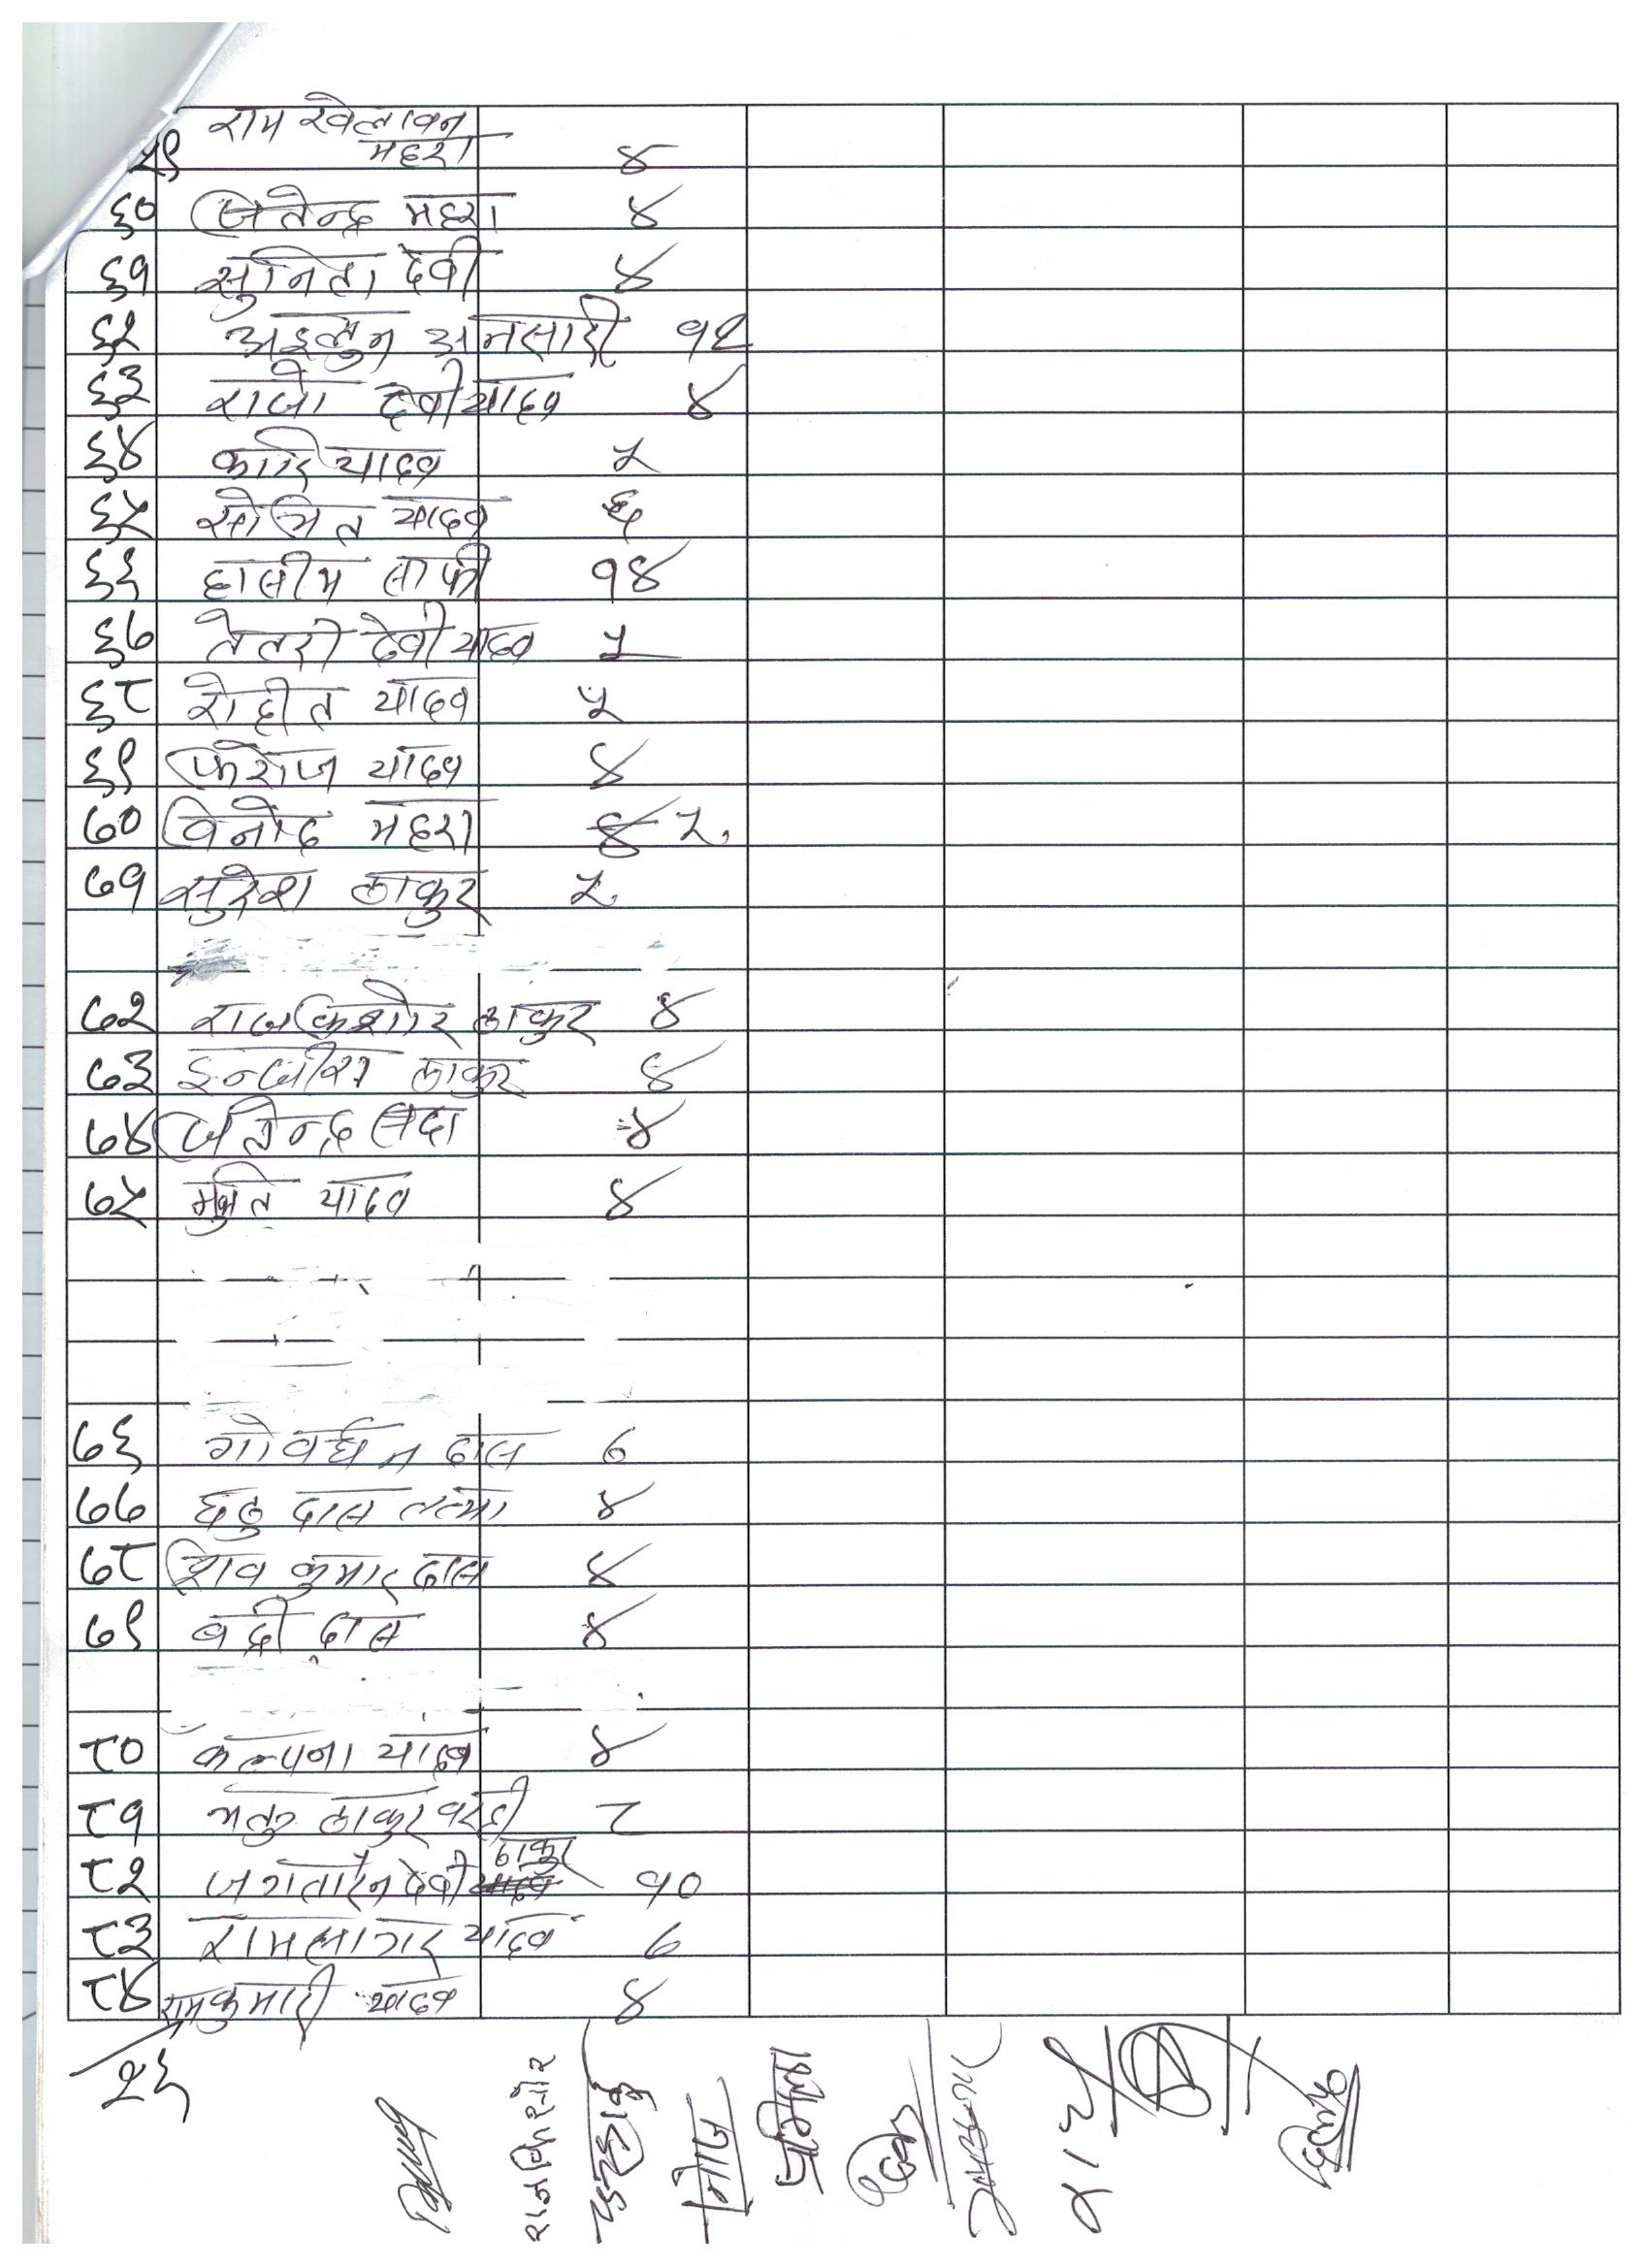 ५९ राम खेलावन महरा ४
६० जितेन्द्र महरा ४
६१ सुनिता देवी ४
६२ अनसारी १२
६३ राजो देवी यादव ४
६४ कारि यादव ५
६५ सोभित यादव ६
६६ हासीम साफी १४
६७ तेतरी देवी यादव ५
६८ रोहीत यादव ५
६९ फिरोज यादव ४
७० विनोद महरा ४ ५
७१ सुरेश ठाकुर ५
७२ राजकिशोर ठाकुर ४
७३ ठाकुर ४
७४ जितेन्द्र सदा ४
७५ यादव ४
७६ गोवर्धन दास ७
७७ दास तत्मा ४
७८ शिव कुमार दास ४
७९ बद्री दास ४
८० कल्पना यादव ४
८१ ठाकुर ८
८२ जगतारैन देवी ठाकुर १०
८३ रामसागर यादव ७
८४ रामकुमारी यादव ४
२६
राज किशोर
प्रमिला